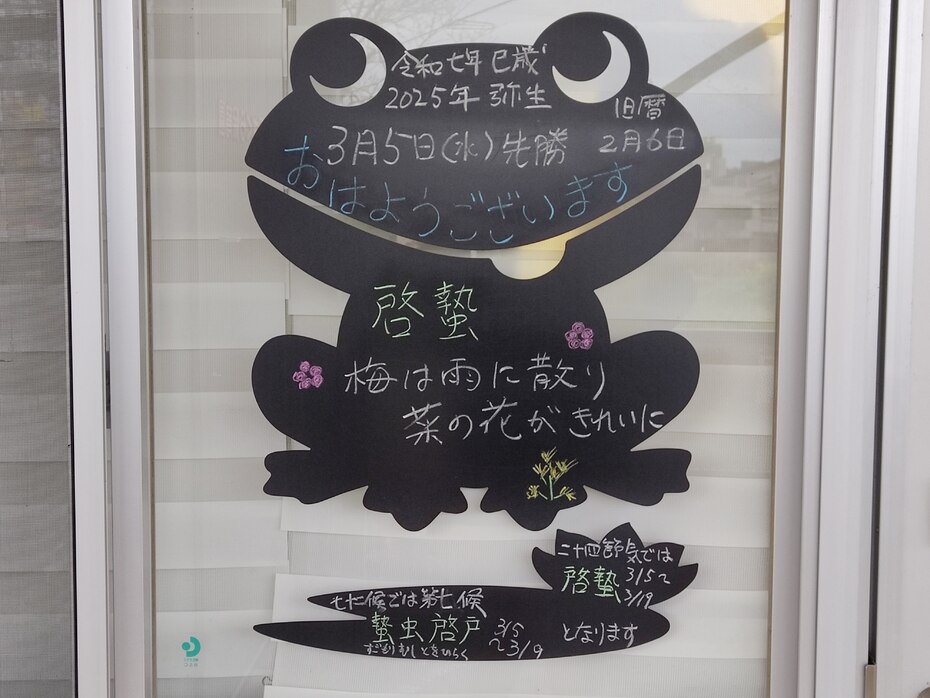 令和七年 巳歳
2025年 弥生
旧暦
3月5日(水)先勝 2月6日
おはようございます
啓蟄
梅は雨に散り
菜の花がきれいに
二十四節気では
啓蟄 3/5〜
3/19
七十二候では第七候
蟄虫啓戸 3/5
〜3/9
となります